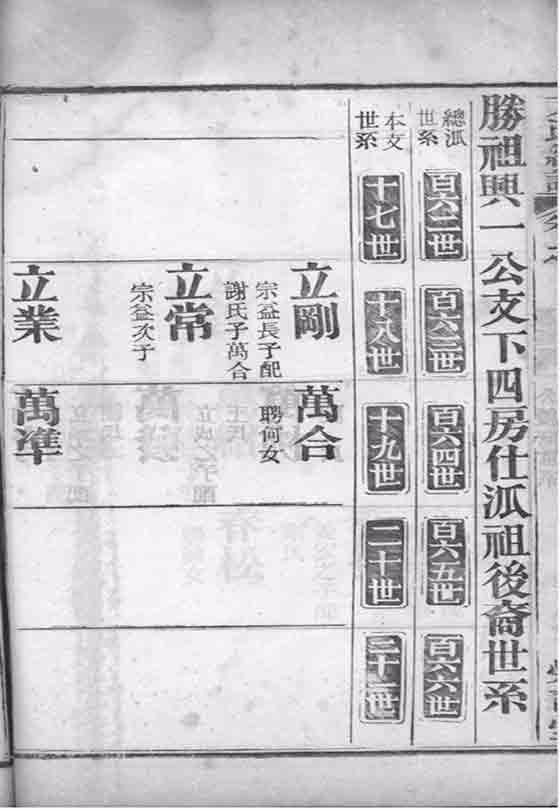 勝祖興一公支下四房仕派祖後裔世系
總派世系
百六二世
百六三世
百六四世
百六五世
百六六世
本支世系
十七世
十八世
十九世
二十世
二十一世
立剛
宗益長子配
謝氏子萬合
萬合
聘何女
立常
宗益次子
立業
萬準